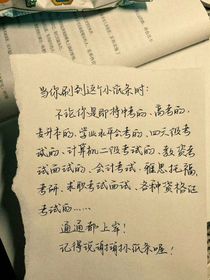 当你刷到这个小纸条时：
不论你是即将中考的、高考的、
专升本的、学业水平会考的、四六级考
试的、计算机二级考试的、教资考
试面试的、会计考试、雅思托福、
考研、求职考试面试、各种资格证
考试的……
通通都上岸！
记得说谢谢小纸条喔！